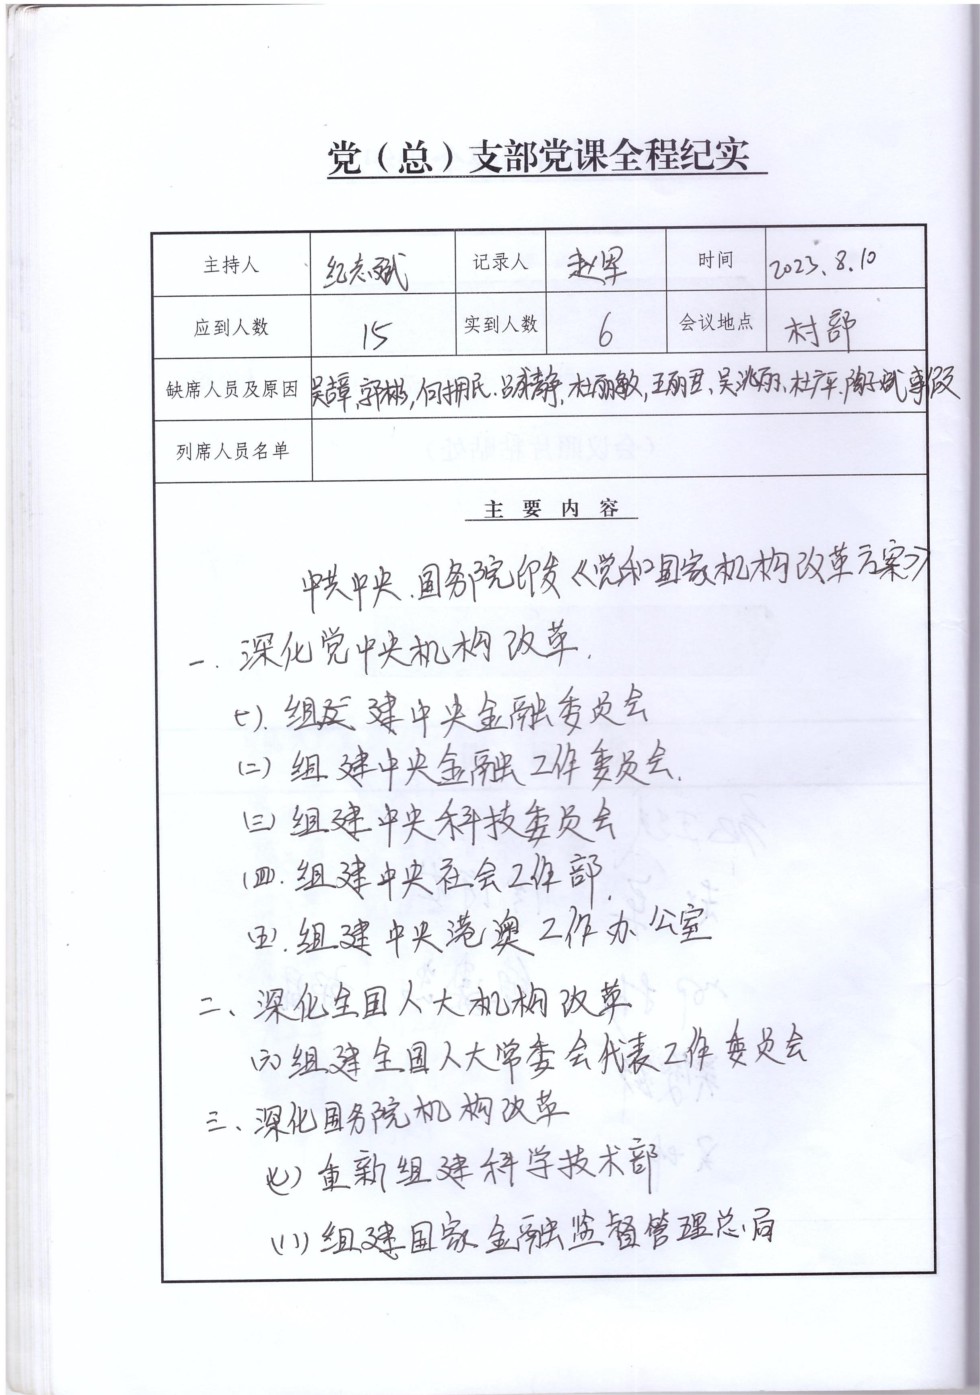 党（总）支部党课全程纪实
主持人 纪志斌 记录人 赵军 时间 2023.8.10
应到人数 15 实到人数 6 会议地点 村部
缺席人员及原因 郭彬, 何拥民. 杜丽敏, 杜平. 事假
列席人员名单
主要内容
中共中央.国务院印发《党和国家机构改革方案》
一.深化党中央机构改革.
(一).组建中央金融委员会
(二)组建中央金融工作委员会.
(三)组建中央科技委员会
(四.组建中央社会工作部.
(五.组建中央港澳工作办公室
二、深化全国人大机构改革
(六)组建全国人大常委会代表工作委员会
三、深化国务院机构改革
(七)重新组建科学技术部
(八)组建国家金融监督管理总局